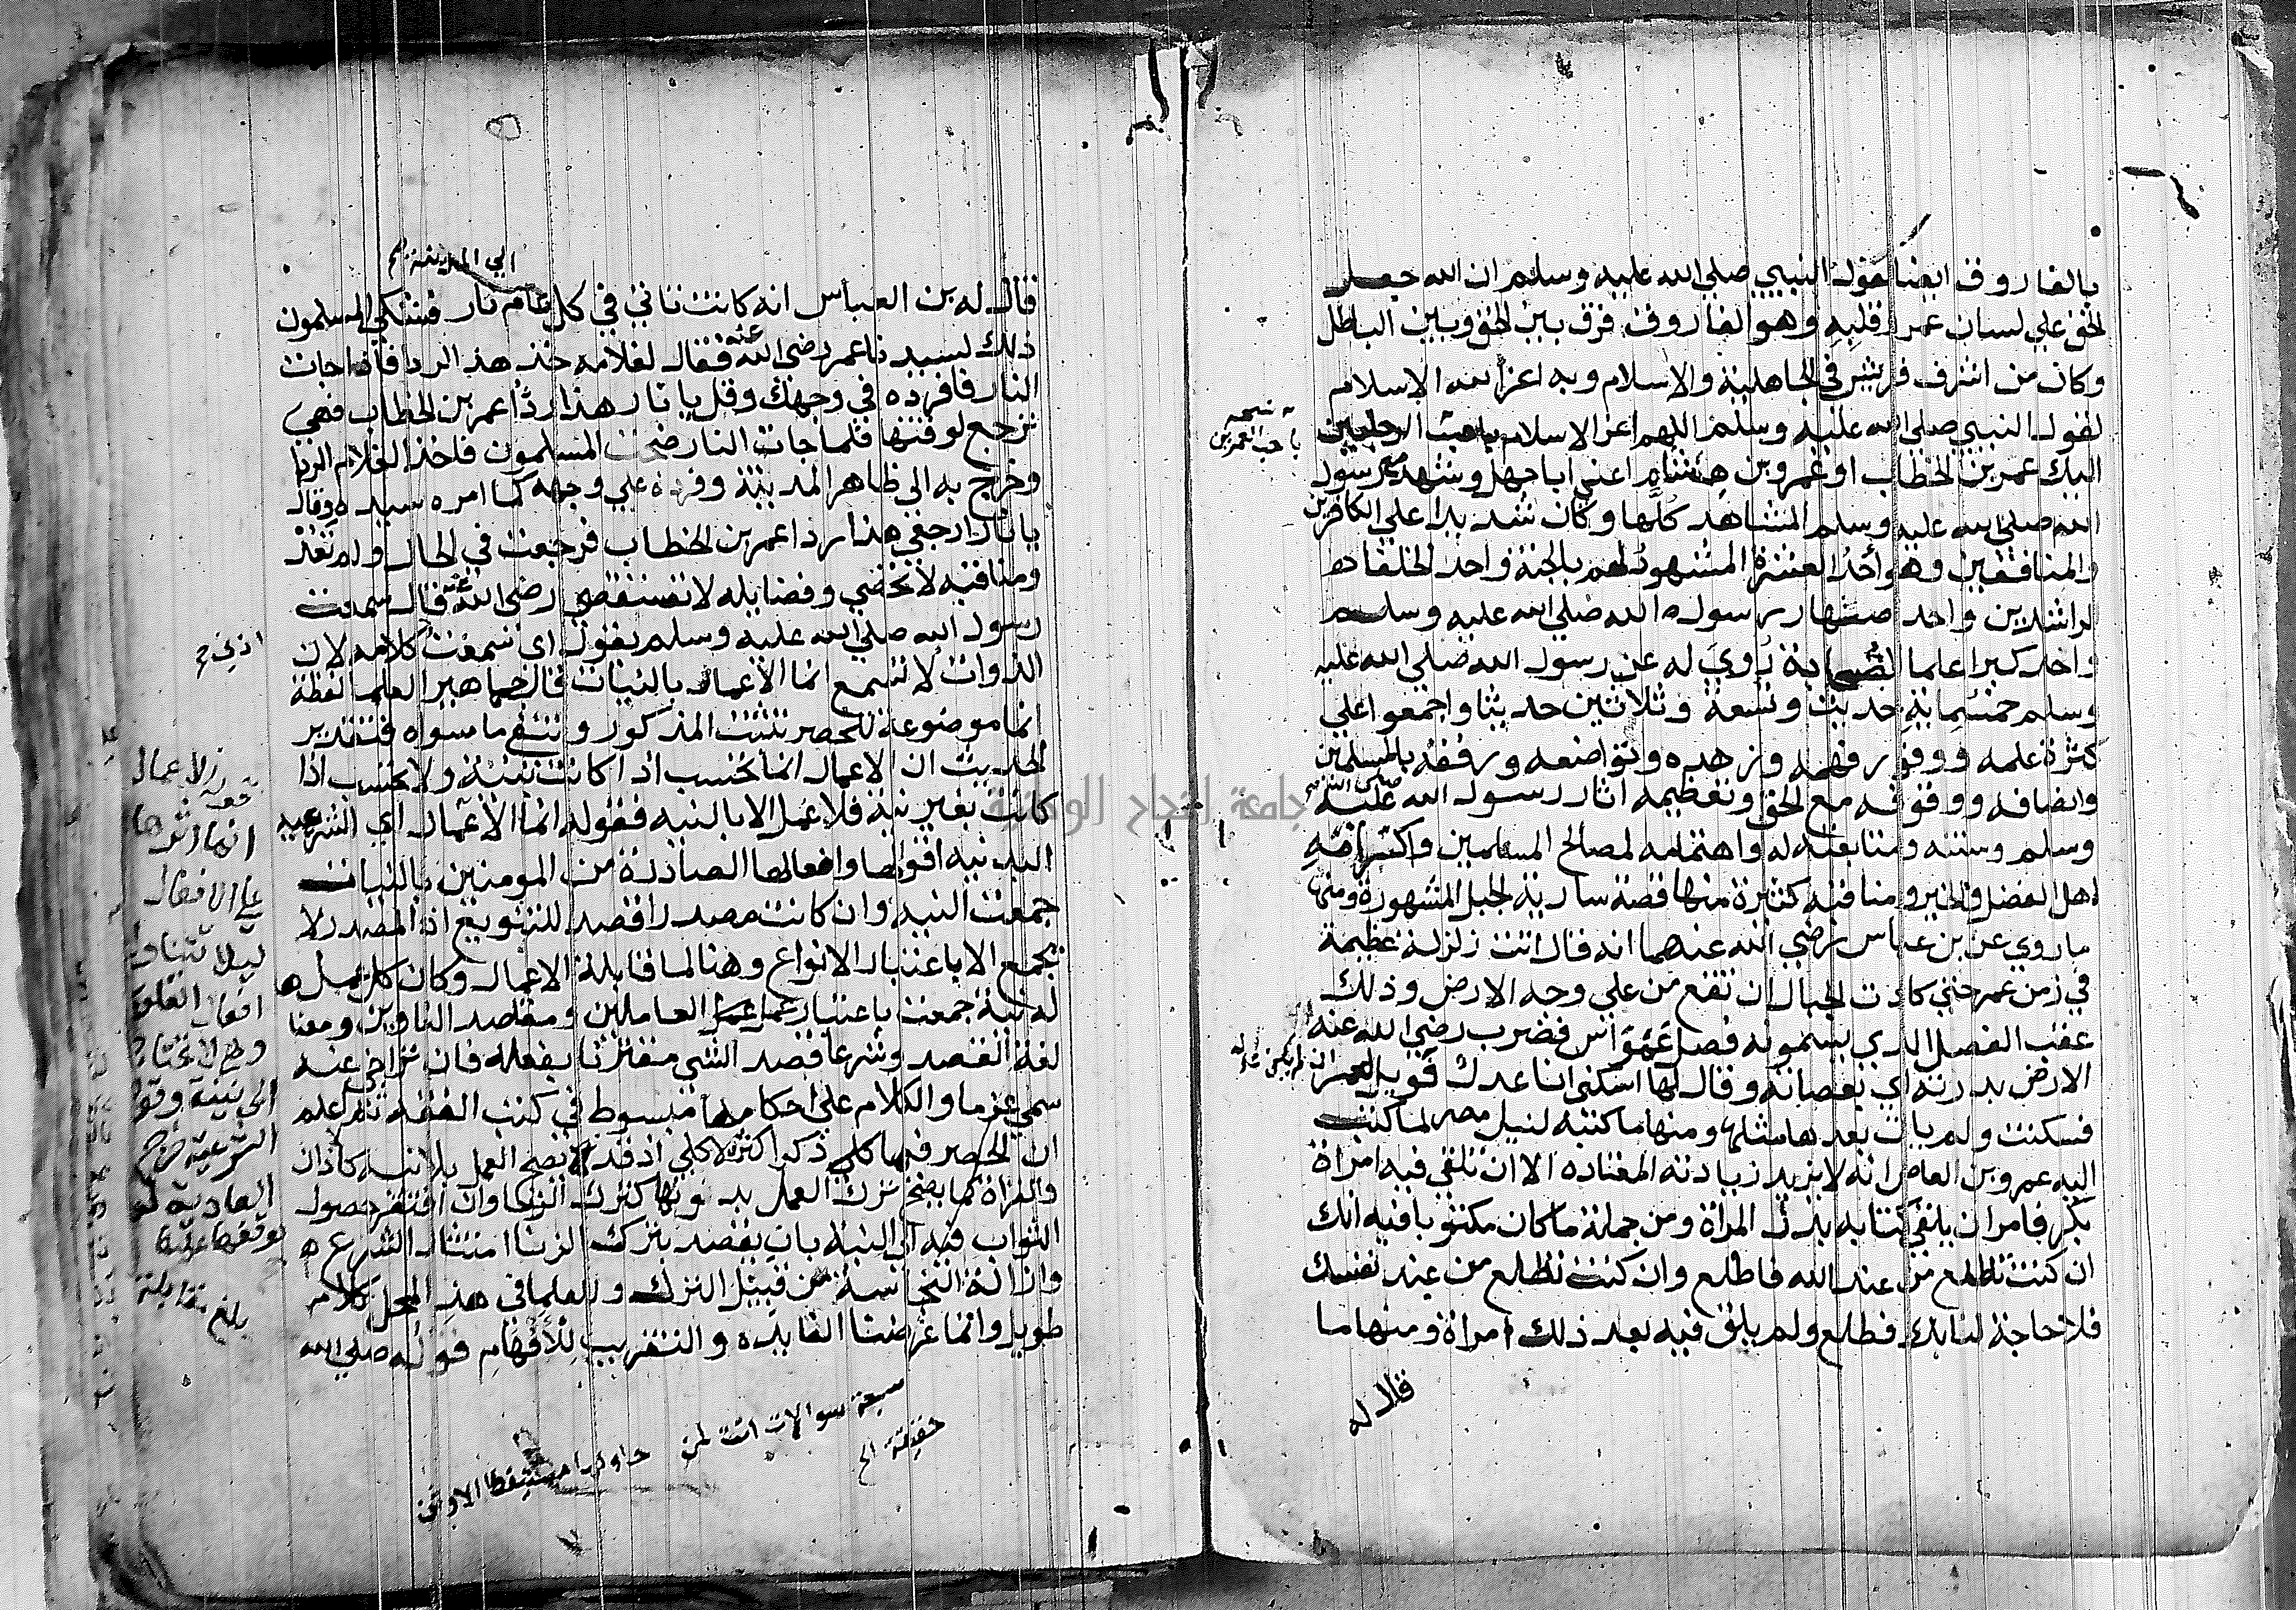 بالفاروق ايضا لقول النبي صلي الله عليه وسلم ان الله جعل
الحق علي لسان عمر وقلبه وهو الفاروق فرق بين الحق وبين الباطل
وكان من اشرف قريش في الجاهلية والاسلام وبه اعز الله الاسلام
لقول النبي صلي الله عليه وسلم اللهم اعز الاسلام باحب الرجلين
اليك عمر بن الخطاب او عمرو بن هشام اعني ابا جهل وشهد مع رسول
الله صلي الله عليه وسلم المشاهد كلها وكان شديدا علي الكافرين
والمنافقين وهو أحد العشرة المشهود لهم بالجنة واحد الخلفاء
الراشدين واحد اصهار رسول الله صلي الله عليه وسلم
واحد كبرا علما الصحابة روي له عن رسول الله صلي الله عليه
وسلم خمسماية حديث وتسعة وثلاثين حديثا واجمعوا علي
كثرة علمه ووفور فهمه وزهده وتواضعه ورفقه بالمسلمين
وانصافه ووقوفه مع الحق وتعظيمه اثار رسول الله صلي الله عليه
وسلم وسنته ومتابعته له واهتمامه لمصالح المسلمين واكرامه
اهل الفضل والخير ومناقبه كثيرة منها قصة سارية الجبل المشهورة ومنها
ما روي عن بن عباس رضي الله عنهما انه قال اتت زلزلة عظيمة
في زمن عمر حتي كادت الجبال ان تقع من علي وجه الارض وذلك
عقب الفصل الذي يسمونه فصل عمواس فضرب رضي الله عنه
الارض بدرته اي بعصاته وقال لها اسكني انا عدلك
فسكنت ولم يات بعدها مثلها ومنها ما كتبه لنيل مصر لما كتب
اليه عمرو بن العاص انه لا يزيد زيادته المعتاده الا ان تلقي فيه امراة
بكر فامر ان يلقي كتابه بدل المراة ومن جملة ما كان مكتوبا فيه انك
ان كنت تطلع من عند الله فاطلع وان كنت تطلع من عند نفسك
فلا حاجة لنا بك فطلع ولم يلق فيه بعد ذلك امراة ومنها ما
قال له
الي المدينة
قال له بن العباس انه كانت تاتي في كل عام نار فشكي المسلمون
ذلك لسيدنا عمر رضي الله عنه فقال لغلامه خذ هذ الردا فاذا جات
النار فافرده في وجهك وقل يا نار هذا ردُا عمر بن الخطاب فهي
ترجع لوقتها فلما جات النار ضجت المسلمون فاخذ الغلام الردا
وخرج به الي ظاهر المدينة وفرده علي وجهه كما امره سيده وقال
يا نار ارجعي هذا ردا عمر بن الخطاب فرجعت في الحال ولم تعد
ومناقبه لا تحصي وفضايله لا تستقصي رضي الله عنه قال سمعت
رسول الله صلي الله عليه وسلم يقول اي سمعت كلامه لان
الذوات لا تسمع انما الاعمال بالنيات قال جماهير العلما لفظة
انما موضوعة للحصر تثبت المذكور وتنفي ما سواه فتقدير
الحديث ان الاعمال انما تحسب اذا كانت بنية ولا تحسب اذا
كانت بغير نية فلا عمل الا بالنيه فقوله انما الاعمال اي الشرعيه
البدنيه اقوالها وافعالها الصادرة من المومنين بالنيات
جمعت النيه وان كانت مصدرا قصد للتنويع اذ المصدر لا
يجمع الا باعتبار الانواع وهنا لمقابلة الاعمال وكان كل عمل
له نية جمعت باعتبار عمل العاملين ومقاصد الناوين ومعنا
لغة القصد وشرعا قصد الشي مقترنا بفعله فان تراخي عنه
سمي عزما والكلام علي احكامها مبسوط في كتب الفقه ثم اعلم
ان الحصر فيها كلي ذكوا اكثر لا كلي اذ قد يصح العمل بلا نيه كاذان
والقراة كما يصح ترك العمل بدونها كترك الزنا وان افتقر حصول
الثواب فيه الي النية بان يقصد بترك الزنا امتثال الشرع
وازالة النجاسة من قبيل الترك وللعلما في هذ المحل كلام
طويل وانما غرضنا الفايده والتقريب للافهام قوله صلي الله
اذني
انما اثرها
علي الافعال
ليلا تتناول
افعال القلوب
الي نية وقوله
الشرعية خرج
العادية
بلغ مقابلة
سبعة سوالات اتت لمن
حقيقة الخ